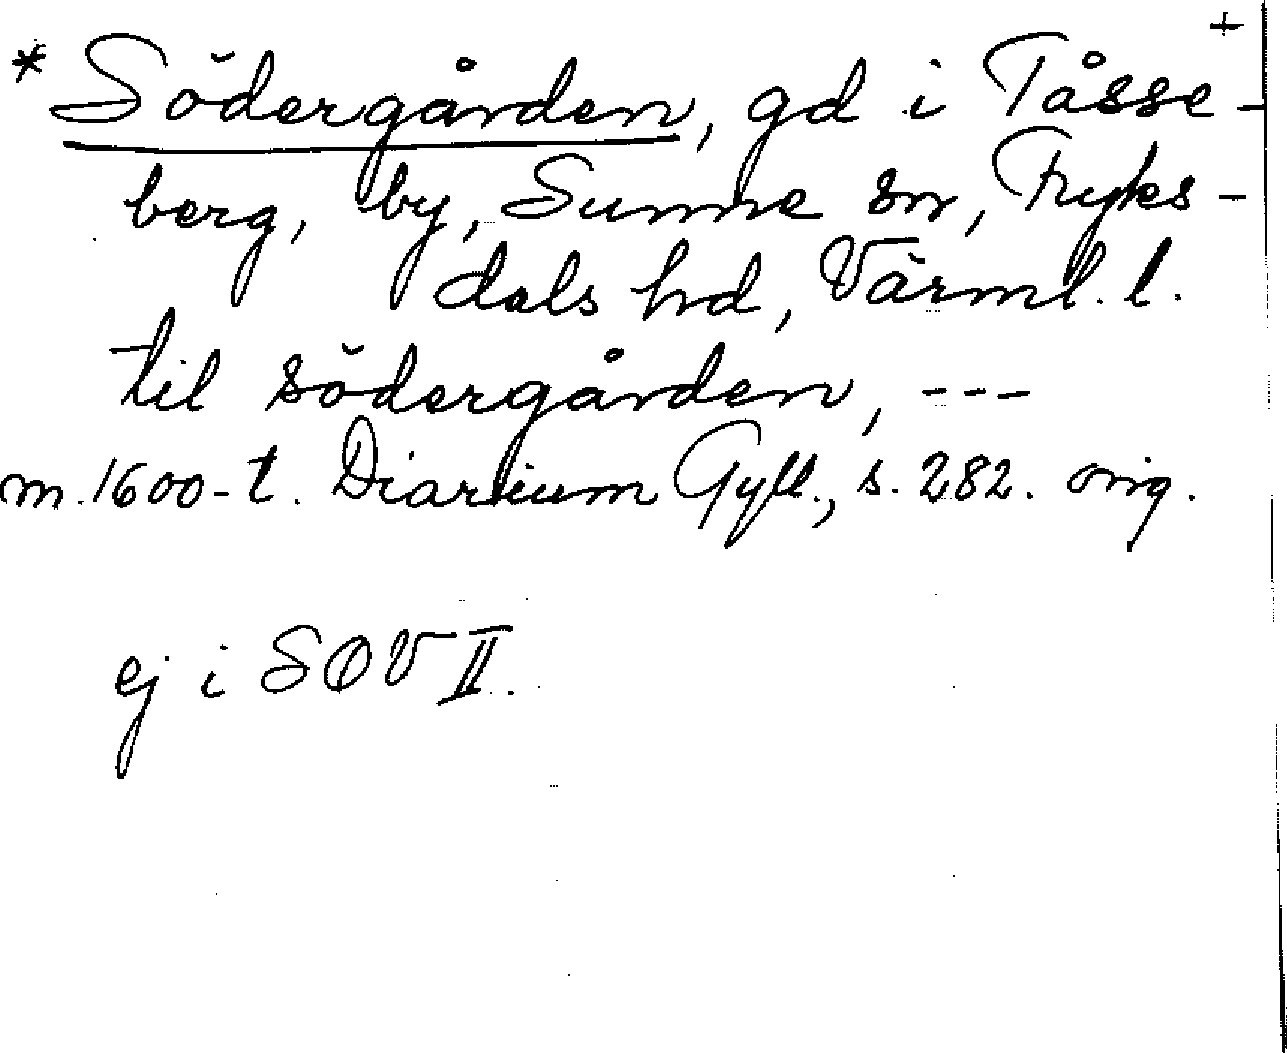 +
* Södergården, gd i Tåsse-
berg, by, Sunne sn, Fryks-
dals hd, Värml. l.
til södergården, ---
m. 1600-t. Diarium Gyll., s. 282. orig.
ej i SOV II.